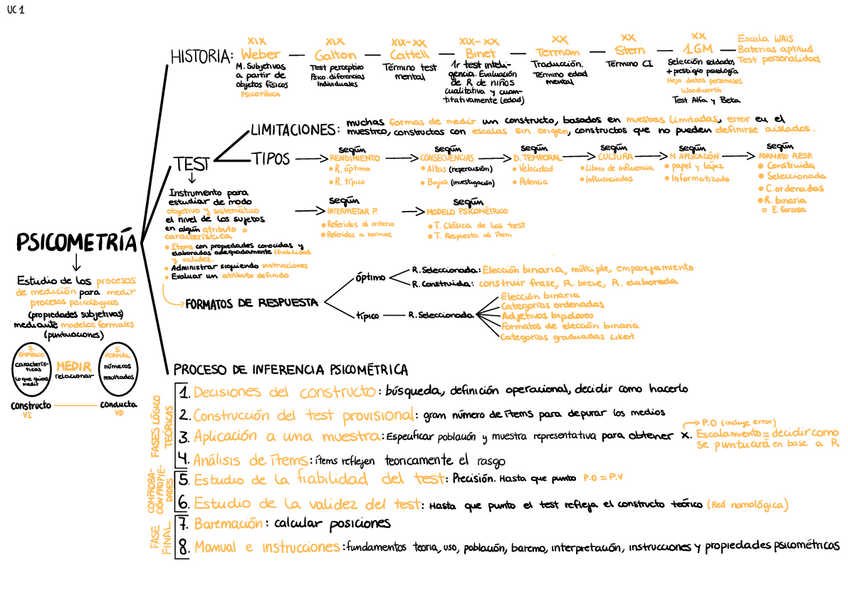 UC 1
HISTORIA:
XIX
Weber
M. Subjetivas
a partir de
objetos físicos
PSICOFÍSICA
XIX
Galton
Test perceptivo
Psico. diferencias
Individuales
XIX-XX
Cattell
Término test
mental
XIX-XX
Binet
1r test inteli-
gencia. Evaluación
de R de niños
cualitativa y cuan-
titativamente (edad)
XX
Terman
Traducción.
Término edad
mental
XX
Stern
Término CI
XX
1.GM
Selección soldados
+ prestigio psicología
Hoja datos personales
Woodworth
Test Alfa y Beta
Escala WAIS
Baterías aptitud
Test personalidad
TEST
Instrumento para
estudiar de modo
objetivo y sistemático
el nivel de los sujetos
en algún atributo o
característica.
• Ítems con propiedades conocidas y
elaborados adecuadamente (fiabilidad
y validez.
• Administrar siguiendo instrucciones
• Evaluar un atributo definido
LIMITACIONES: muchas formas de medir un constructo, basados en muestras limitadas, error en el
muestreo, constructos con escalas sin origen, constructos que no pueden definirse aislados.
TIPOS
según
RENDIMIENTO
• R. óptimo
• R. típico
según
CONSECUENCIAS
• Altas (repercusión)
• Bajas (investigación)
según
D. TEMPORAL
• Velocidad
• Potencia
según
CULTURA
• Libre de influencia
• Influenciados
según
M. APLICACIÓN
• papel y lápiz
• Informatizado
según
FORMATO RESP.
• Construida
• Seleccionada
• C. ordenadas
• R. binaria
• E. forzosa
según
INTERPRETAR P.
• Referidos al criterio
• Referidos a normas
según
MODELO PSICOMÉTRICO
• T. Clásica de los test
• T. Respuesta al ítem
PSICOMETRÍA
Estudio de los procesos
de medición para medir
procesos psicológicos
(propiedades subjetivas)
mediante modelos formales
(puntuaciones)
S. EMPÍRICO
caracterís-
ticas
lo que quiero
medir
MEDIR
relacionar
S. FORMAL
números
resultados
constructo
VI
conducta
VD
FORMATOS DE RESPUESTA
óptimo
R. Seleccionada: Elección binaria, múltiple, emparejamiento
R. Construida: construir frase, R. breve, R. elaborada
típico
R. Seleccionada
Elección binaria
Categorías ordenadas
Adjetivos bipolares
Formatos de elección binaria
Categorías graduadas Likert
PROCESO DE INFERENCIA PSICOMÉTRICA
FASES LÓGICO
TEÓRICAS
1. Decisiones del constructo: búsqueda, definición operacional, decidir como hacerlo
2. Construcción del test provisional: gran número de ítems para depurar los medios
3. Aplicación a una muestra: Especificar población y muestra representativa para obtener X.
P.O (incluye error)
Escalamiento = decidir como
se puntuará en base a R
4. Análisis de ítems: ítems reflejen teoricamente el rasgo
COMPROBA-
CIÓN PROPIE-
DADES
5. Estudio de la fiabilidad del test: Precisión. Hasta que punto P.O = P.V
6. Estudio de la validez del test: Hasta que punto el test refleja el constructo teórico (Red nomológica)
FASE
FINAL
7. Baremación: calcular posiciones
8. Manual e instrucciones: fundamentos teoria, uso, población, baremo, interpretación, instrucciones y propiedades psicométricas